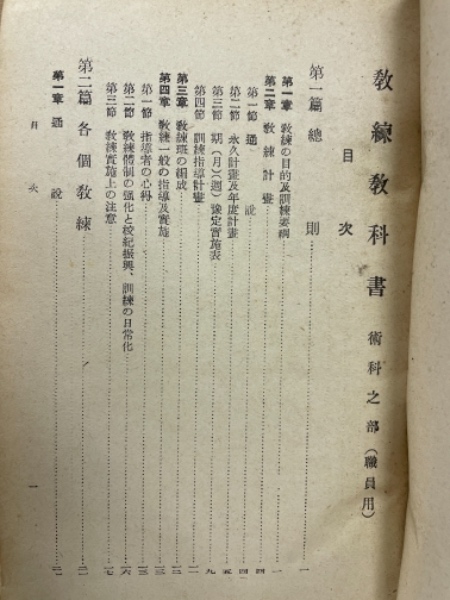 教練教科書 術科之部(職員用)
目次
第一篇 總則……一
第一章 教練の目的及訓練要綱……一
第二章 教練計畫……四
第一節 通說……四
第二節 永久計畫及年度計畫……五
第三節 期(月)(週)豫定實施表……九
第四節 訓練指導計畫……一一
第三章 教練班の編成……一二
第四章 教練一般の指導及實施……一三
第一節 指導者の心得……一三
第二節 教練體制の强化と校紀振興、訓練の日常化……一六
第三節 教練實施上の注意……一七
第二篇 各個教練……二一
第一章 通說……二一
目次 一